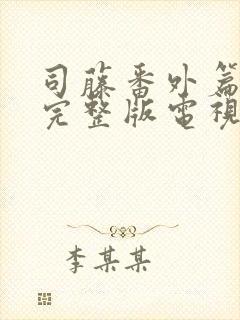 司藤番外篇
完整版電視
李某某